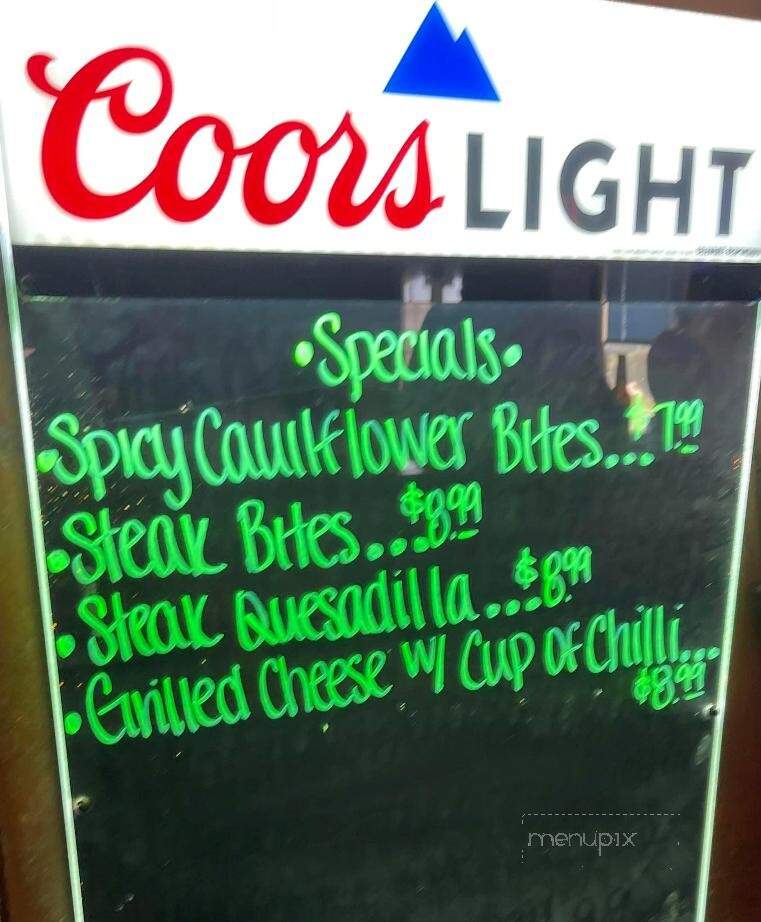 Coors LIGHT
•Specials•
•Spicy Cauliflower Bites...$7.99
•Steak Bites...$8.99
•Steak Quesadilla...$8.99
•Grilled Cheese w/ Cup of Chilli...
$8.99
menupix